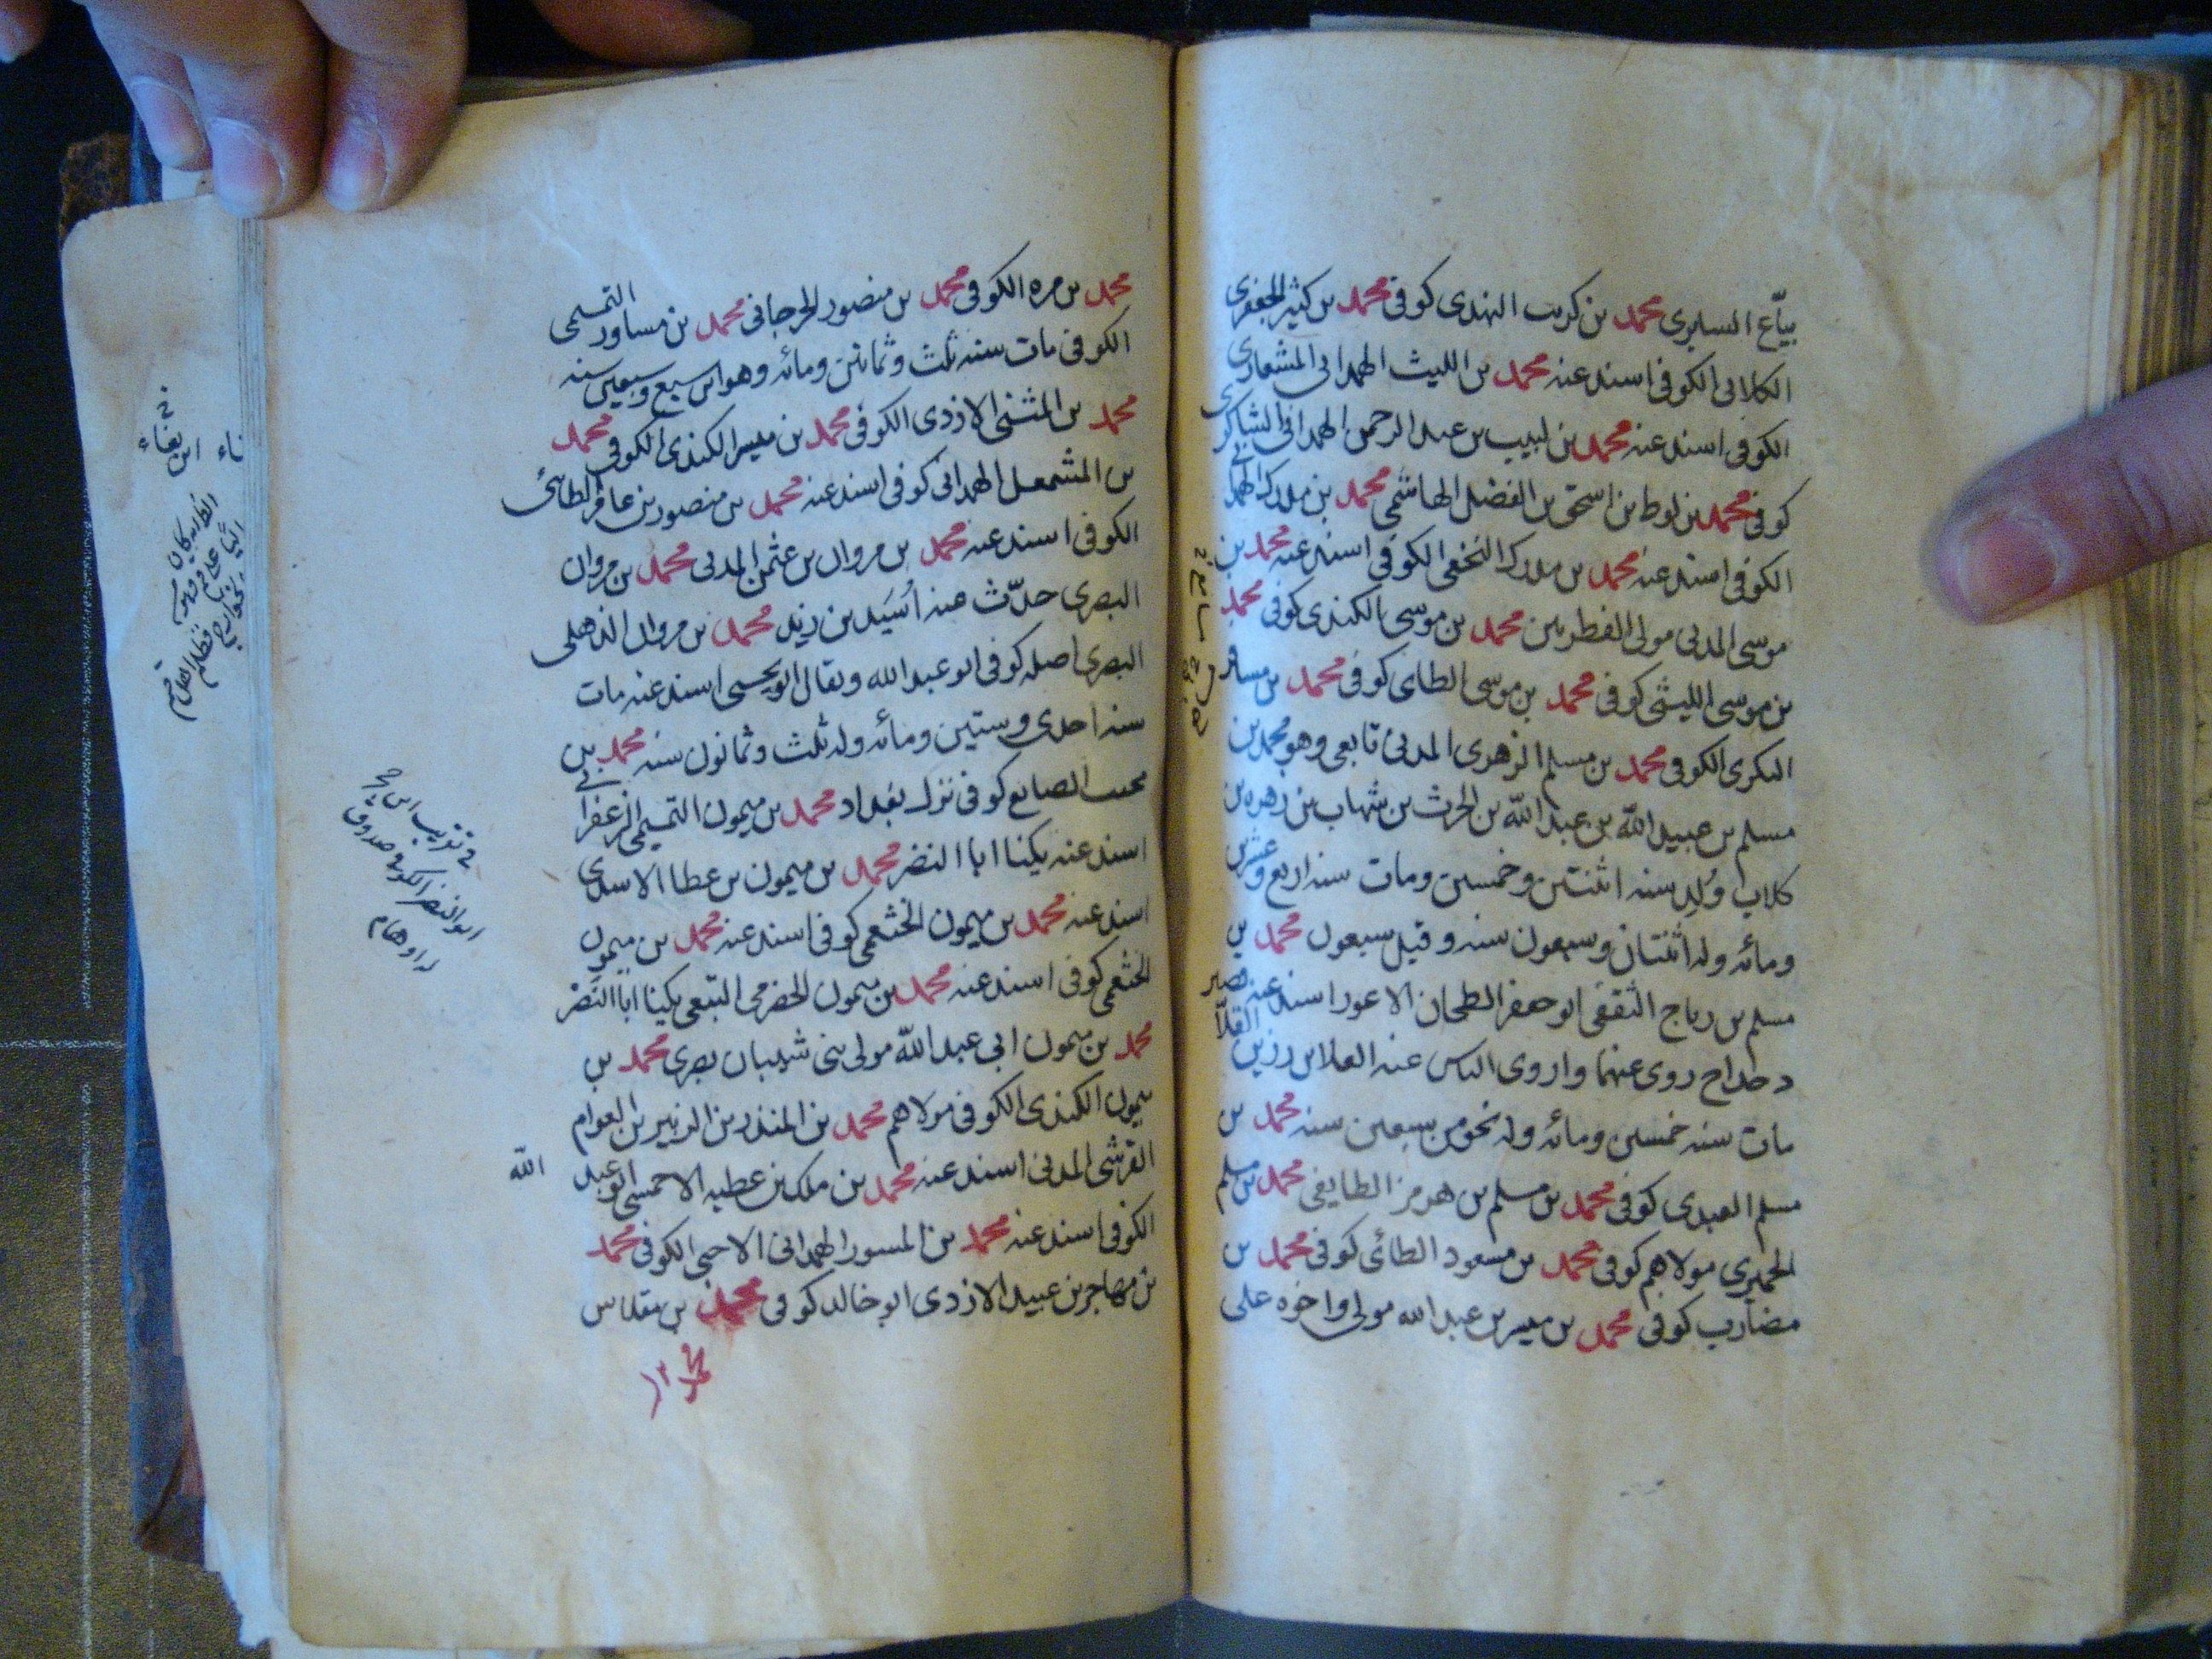 بياع السابرى محمد بن كريب النهدى كوفى محمد بن كثير الجعفرى
الكلابى الكوفى اسند عنه محمد بن الليث الهمدانى المشعارى
الكوفى اسند عنه محمد بن لبيب بن عبد الرحمن الهمدانى الشاكرى
كوفى محمد بن لوط بن اسحق بن الفضل الهاشمى محمد بن مدرك الهمدانى
الكوفى اسند عنه محمد بن مدرك النخعى الكوفى اسند عنه محمد بن
موسى المدنى مولى الفطريين محمد بن موسى الكندى كوفى محمد
بن موسى الليثى كوفى محمد بن موسى الطاى كوفى محمد بن مسافر
البكرى الكوفى محمد بن مسلم الزهرى المدنى تابعى وهو محمد بن
مسلم بن عبيد الله بن عبد الله بن الحرث بن شهاب بن زهره بن
كلاب ولد سنه اثنتين وخمسين ومات سنه اربع وعشرين
ومائه وله اثنتان وسبعون سنه وقيل سبعون محمد بن
مسلم بن رباح الثقفى ابو جعفر الطحان الاعور اسند عنه قصير
دحداح روى عنهما واروى الناس عنه العلا بن رزين القلا
مات سنه خمسين ومائه وله نحو من سبعين سنه محمد بن
مسلم العبدى كوفى محمد بن مسلم بن هرمز الطايفى محمد بن مسلم
الحميرى مولاهم كوفى محمد بن مسعود الطائى كوفى محمد بن
مضارب كوفى محمد بن ميسر بن عبد الله مولى واخوه على
محمد بن مره الكوفى محمد بن منصور الجرجانى محمد بن مساور التميمى
الكوفى مات سنه ثلث وثمانين ومائه وهو ابن سبع وسبعين سنه
محمد بن المثنى الازدى الكوفى محمد بن ميسر الكندى الكوفى محمد
بن المشمعل الهمدانى كوفى اسند عنه محمد بن منصور بن عافر الطائى
الكوفى اسند عنه محمد بن مروان بن عثمن المدنى محمد بن مروان
البصرى حدّث عنه اُسَيد بن زيد محمد بن مروان الذهلى
البصرى اصله كوفى ابو عبد الله ويقال ابو يحيى اسند عنه مات
سنه احدى وستين ومائه وله ثلث وثمانون سنه محمد بن
محبب الصايع كوفى نزل بغداد محمد بن ميمون التميمى الزعفرانى
اسند عنه يكنا ابا النضر محمد بن ميمون بن عطا الاسدى
اسند عنه محمد بن ميمون الخثعمى كوفى اسند عنه محمد بن ميمون
الخثعمى كوفى اسند عنه محمد بن ميمون الحضرمى التبعى يكنا ابا النضر
محمد بن ميمون ابى عبد الله مولى بنى شيبان بصرى محمد بن
ميمون الكندى الكوفى مولاهم محمد بن المنذر بن الزبير بن العوام
القرشى المدنى اسند عنه محمد بن ملك بن عطيه الاحمسى ابو عبد الله
الكوفى اسند عنه محمد بن المسور الهمدانى الارحبى الكوفى محمد
بن مهاجر بن عبيد الازدى ابو خالد كوفى محمد بن مقلاس
فى تقريب ابن حجر
ابو النضر الكوفى صدوق
له اوهام